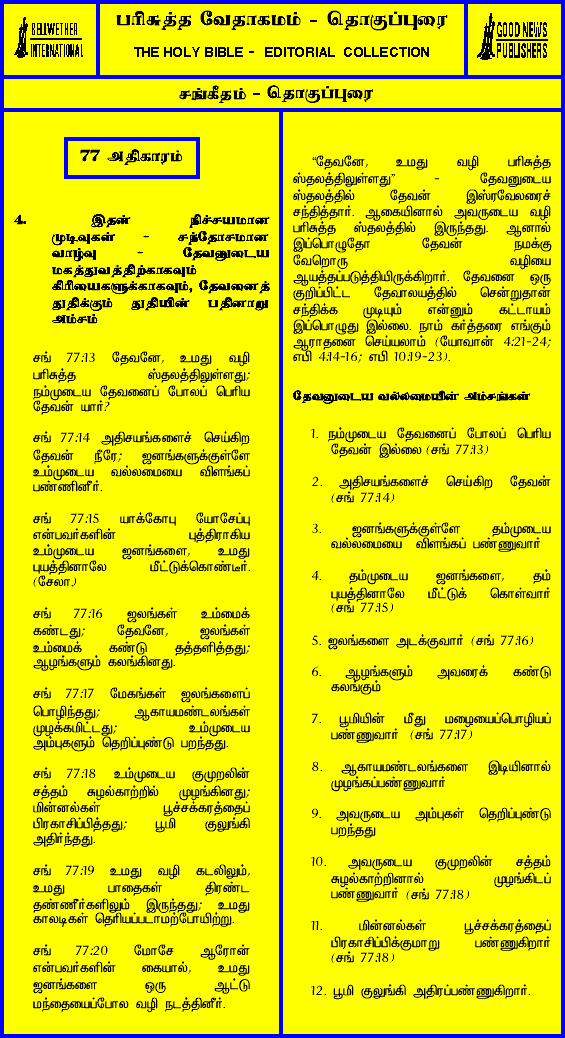 BELLWETHER
INTERNATIONAL
பரிசுத்த வேதாகமம் - தொகுப்புரை
THE HOLY BIBLE - EDITORIAL COLLECTION
GOOD NEWS
PUBLISHERS
சங்கீதம் - தொகுப்புரை
77 அதிகாரம்
4. இதன் நிச்சயமான
முடிவுகள் - சந்தோசமான
வாழ்வு - தேவனுடைய
மகத்துவத்திற்காகவும்
கிரியைகளுக்காகவும், தேவனைத்
துதிக்கும் துதியின் பதினாறு
அம்சம்
சங் 77:13 தேவனே, உமது வழி
பரிசுத்த ஸ்தலத்திலுள்ளது;
நம்முடைய தேவனைப் போலப் பெரிய
தேவன் யார்?
சங் 77:14 அதிசயங்களைச் செய்கிற
தேவன் நீரே; ஜனங்களுக்குள்ளே
உம்முடைய வல்லமையை விளங்கப்
பண்ணினீர்.
சங் 77:15 யாக்கோபு யோசேப்பு
என்பவர்களின் புத்திராகிய
உம்முடைய ஜனங்களை, உமது
புயத்தினாலே மீட்டுக்கொண்டீர்.
(சேலா.)
சங் 77:16 ஜலங்கள் உம்மைக்
கண்டது; தேவனே, ஜலங்கள்
உம்மைக் கண்டு தத்தளித்தது;
ஆழங்களும் கலங்கினது.
சங் 77:17 மேகங்கள் ஜலங்களைப்
பொழிந்தது; ஆகாயமண்டலங்கள்
முழக்கமிட்டது; உம்முடைய
அம்புகளும் தெறிப்புண்டு பறந்தது.
சங் 77:18 உம்முடைய குமுறலின்
சத்தம் சுழல்காற்றில் முழங்கினது;
மின்னல்கள் பூச்சக்கரத்தைப்
பிரகாசிப்பித்தது; பூமி குலுங்கி
அதிர்ந்தது.
சங் 77:19 உமது வழி கடலிலும்,
உமது பாதைகள் திரண்ட
தண்ணீர்களிலும் இருந்தது; உமது
காலடிகள் தெரியப்படாமற்போயிற்று.
சங் 77:20 மோசே ஆரோன்
என்பவர்களின் கையால், உமது
ஜனங்களை ஒரு ஆட்டு
மந்தையைப்போல வழி நடத்தினீர்.
"தேவனே, உமது வழி பரிசுத்த
ஸ்தலத்திலுள்ளது" - தேவனுடைய
ஸ்தலத்தில் தேவன் இஸ்ரவேலரைச்
சந்தித்தார். ஆகையினால் அவருடைய வழி
பரிசுத்த ஸ்தலத்தில் இருந்தது. ஆனால்
இப்பொழுதோ தேவன் நமக்கு
வேறொரு வழியை
ஆயத்தப்படுத்தியிருக்கிறார். தேவனை ஒரு
குறிப்பிட்ட தேவாலயத்தில் சென்றுதான்
சந்திக்க முடியும் என்னும் கட்டாயம்
இப்பொழுது இல்லை. நாம் கர்த்தரை எங்கும்
ஆராதனை செய்யலாம் (யோவான் 4:21-24;
எபி 4:14-16; எபி 10:19-23).
தேவனுடைய வல்லமையின் அம்சங்கள்
1. நம்முடைய தேவனைப் போலப் பெரிய
தேவன் இல்லை (சங் 77:13)
2. அதிசயங்களைச் செய்கிற தேவன்
(சங் 77:14)
3. ஜனங்களுக்குள்ளே தம்முடைய
வல்லமையை விளங்கப் பண்ணுவார்
4. தம்முடைய ஜனங்களை, தம்
புயத்தினாலே மீட்டுக் கொள்வார்
(சங் 77:15)
5. ஜலங்களை அடக்குவார் (சங் 77:16)
6. ஆழங்களும் அவரைக் கண்டு
கலங்கும்
7. பூமியின் மீது மழையைப்பொழியப்
பண்ணுவார் (சங் 77:17)
8. ஆகாயமண்டலங்களை இடியினால்
முழங்கப்பண்ணுவார்
9. அவருடைய அம்புகள் தெறிப்புண்டு
பறந்தது
10. அவருடைய குமுறலின் சத்தம்
சுழல்காற்றினால் முழங்கிடப்
பண்ணுவார் (சங் 77:18)
11. மின்னல்கள் பூச்சக்கரத்தைப்
பிரகாசிப்பிக்குமாறு பண்ணுகிறார்
(சங் 77:18)
12. பூமி குலுங்கி அதிரப்பண்ணுகிறார்.